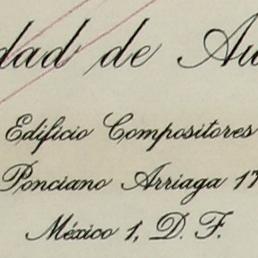 dad de Au
Edificio Compositores
Ponciano Arriaga 17
México 1, D. F.